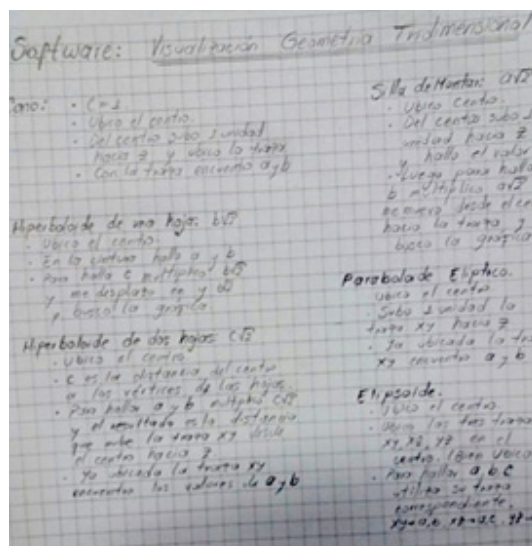 Software: Visualización Geometria Tridimensional
Cono:
• C=1
• Ubico el centro.
• Del centro subo 1 unidad
hacia z y ubico la traza
• Con la traza encuentro a y b
Hiperboloide de una hoja: b√2
• Ubico el centro
• En la cintura hallo a y b
• Para hallar c multiplico b√2
y me desplazo en y b√2
y busco la gráfica
Hiperboloide de dos hojas c√2
• Ubico el centro
• C es la distancia del centro
a los vértices de las hojas.
• Para hallar a y b multiplico c√2
y el resultado es la distancia
que sube la traza xy desde
el centro hacia z
• Ya ubicada la traza xy
encuentro los valores de a y b
Silla de Montar: a√2
• Ubico centro.
• Del centro subo 1
unidad hacia z
y hallo el valor
• Luego para hallar
b multiplico a√2
me muevo desde el
hacia la traza y
busco la gráfica
Paraboloide Elíptico.
Ubico el centro
• Subo 1 unidad la
traza xy hacia z
• Ya ubicada la
xy encuentro a y b
Elipsoide.
• Ubico el centro
• Ubico las tres
xy, xz, yz en el
centro.
• Para hallar a b c
utilizo su traza
correspondiente.